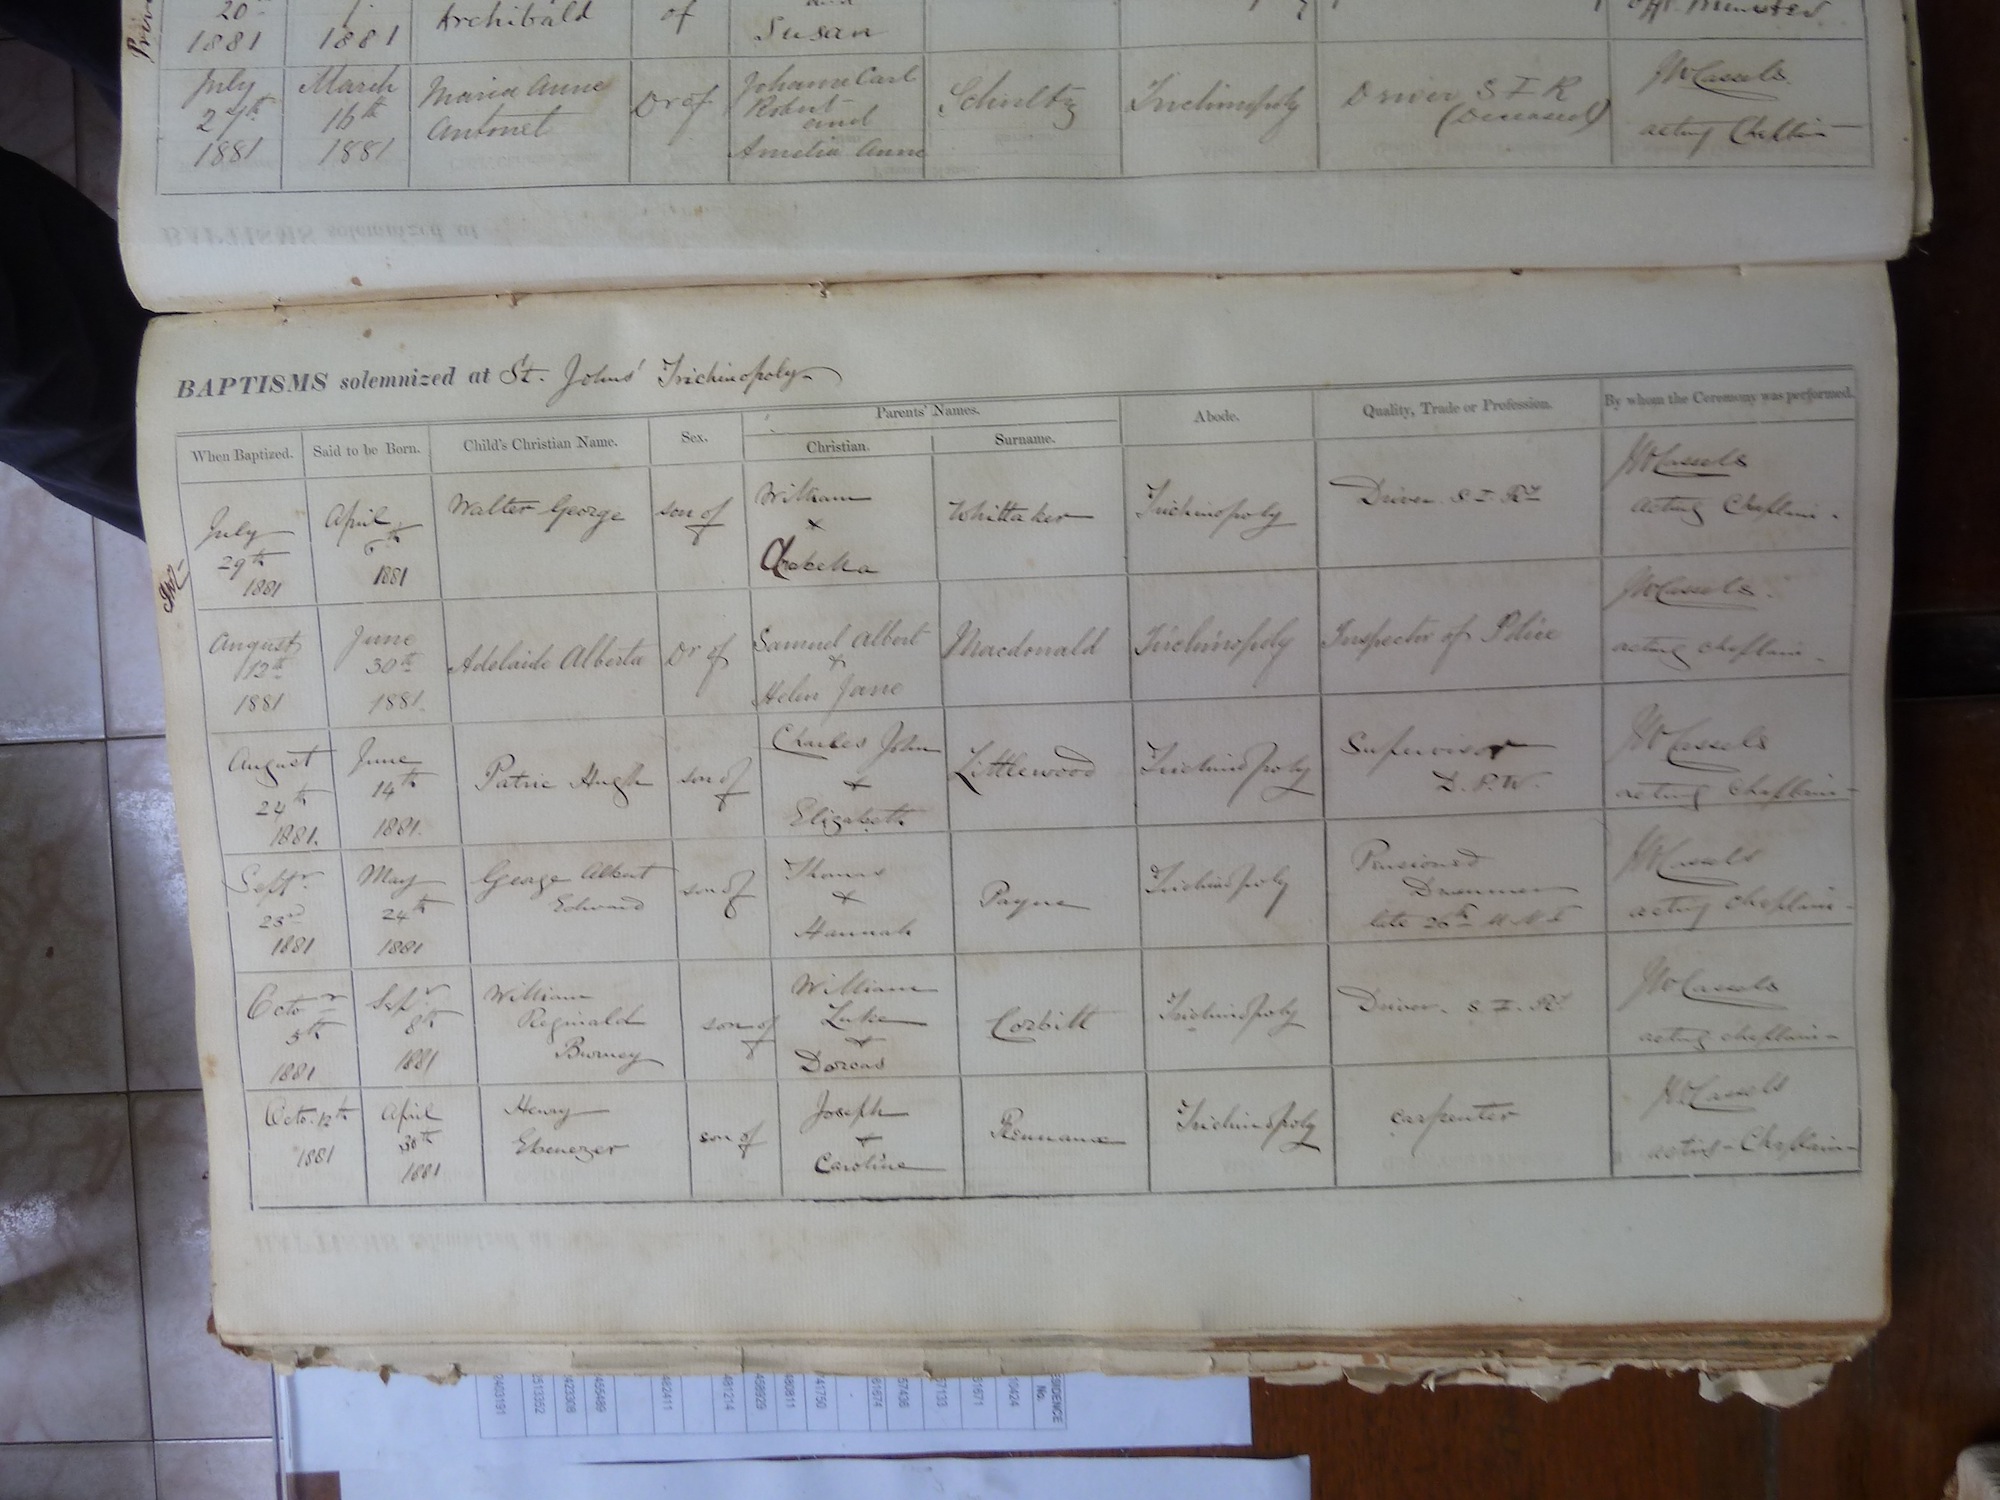 20th
1881 1881 Archibald of and Susan
July 27th 1881 March 16th 1881 Maria Anne Antonet Dr of Johann Carl Robert and Amelia Anne Schultz Trichinopoly Driver S I R (Deceased) JW Cassels acting Chaplain
BAPTISMS solemnized at St. Johns' Trichinopoly
When Baptized. Said to be Born. Child's Christian Name. Sex. Parents' Names. Christian. Surname. Abode. Quality, Trade or Profession. By whom the Ceremony was performed.
July 29th 1881 April 6th 1881 Walter George son of William & Arabella Whittaker Trichinopoly Driver S I Ry JW Cassels acting Chaplain
August 12th 1881 June 30th 1881 Adelaide Alberta Dr of Samuel Albert & Helen Jane Macdonald Trichinopoly Inspector of Police JW Cassels acting chaplain
August 24th 1881 June 14th 1881 Patric Hugh son of Charles John & Elizabeth Littlewood Trichinopoly Supervisor D.P.W. JW Cassels acting Chaplain
Septr 23rd 1881 May 24th 1881 George Albert Edward son of Thomas & Hannah Payne Trichinopoly Pensioned Drummer late 26th M N I JW Cassels acting chaplain
Octor 5th 1881 Sepr 8th 1881 William Reginald Burney son of William Luke & Dorcas Corbitt Trichinopoly Driver S I Ry JW Cassels acting chaplain
Octo. 12th 1881 April 30th 1881 Henry Ebenezer son of Joseph & Caroline Trichinopoly carpenter JW Cassels acting Chaplain
ESIDENCE No.
10424
31671
57133
57436
61674
741750
480811
458929
481214
482411
455489
422308
513352